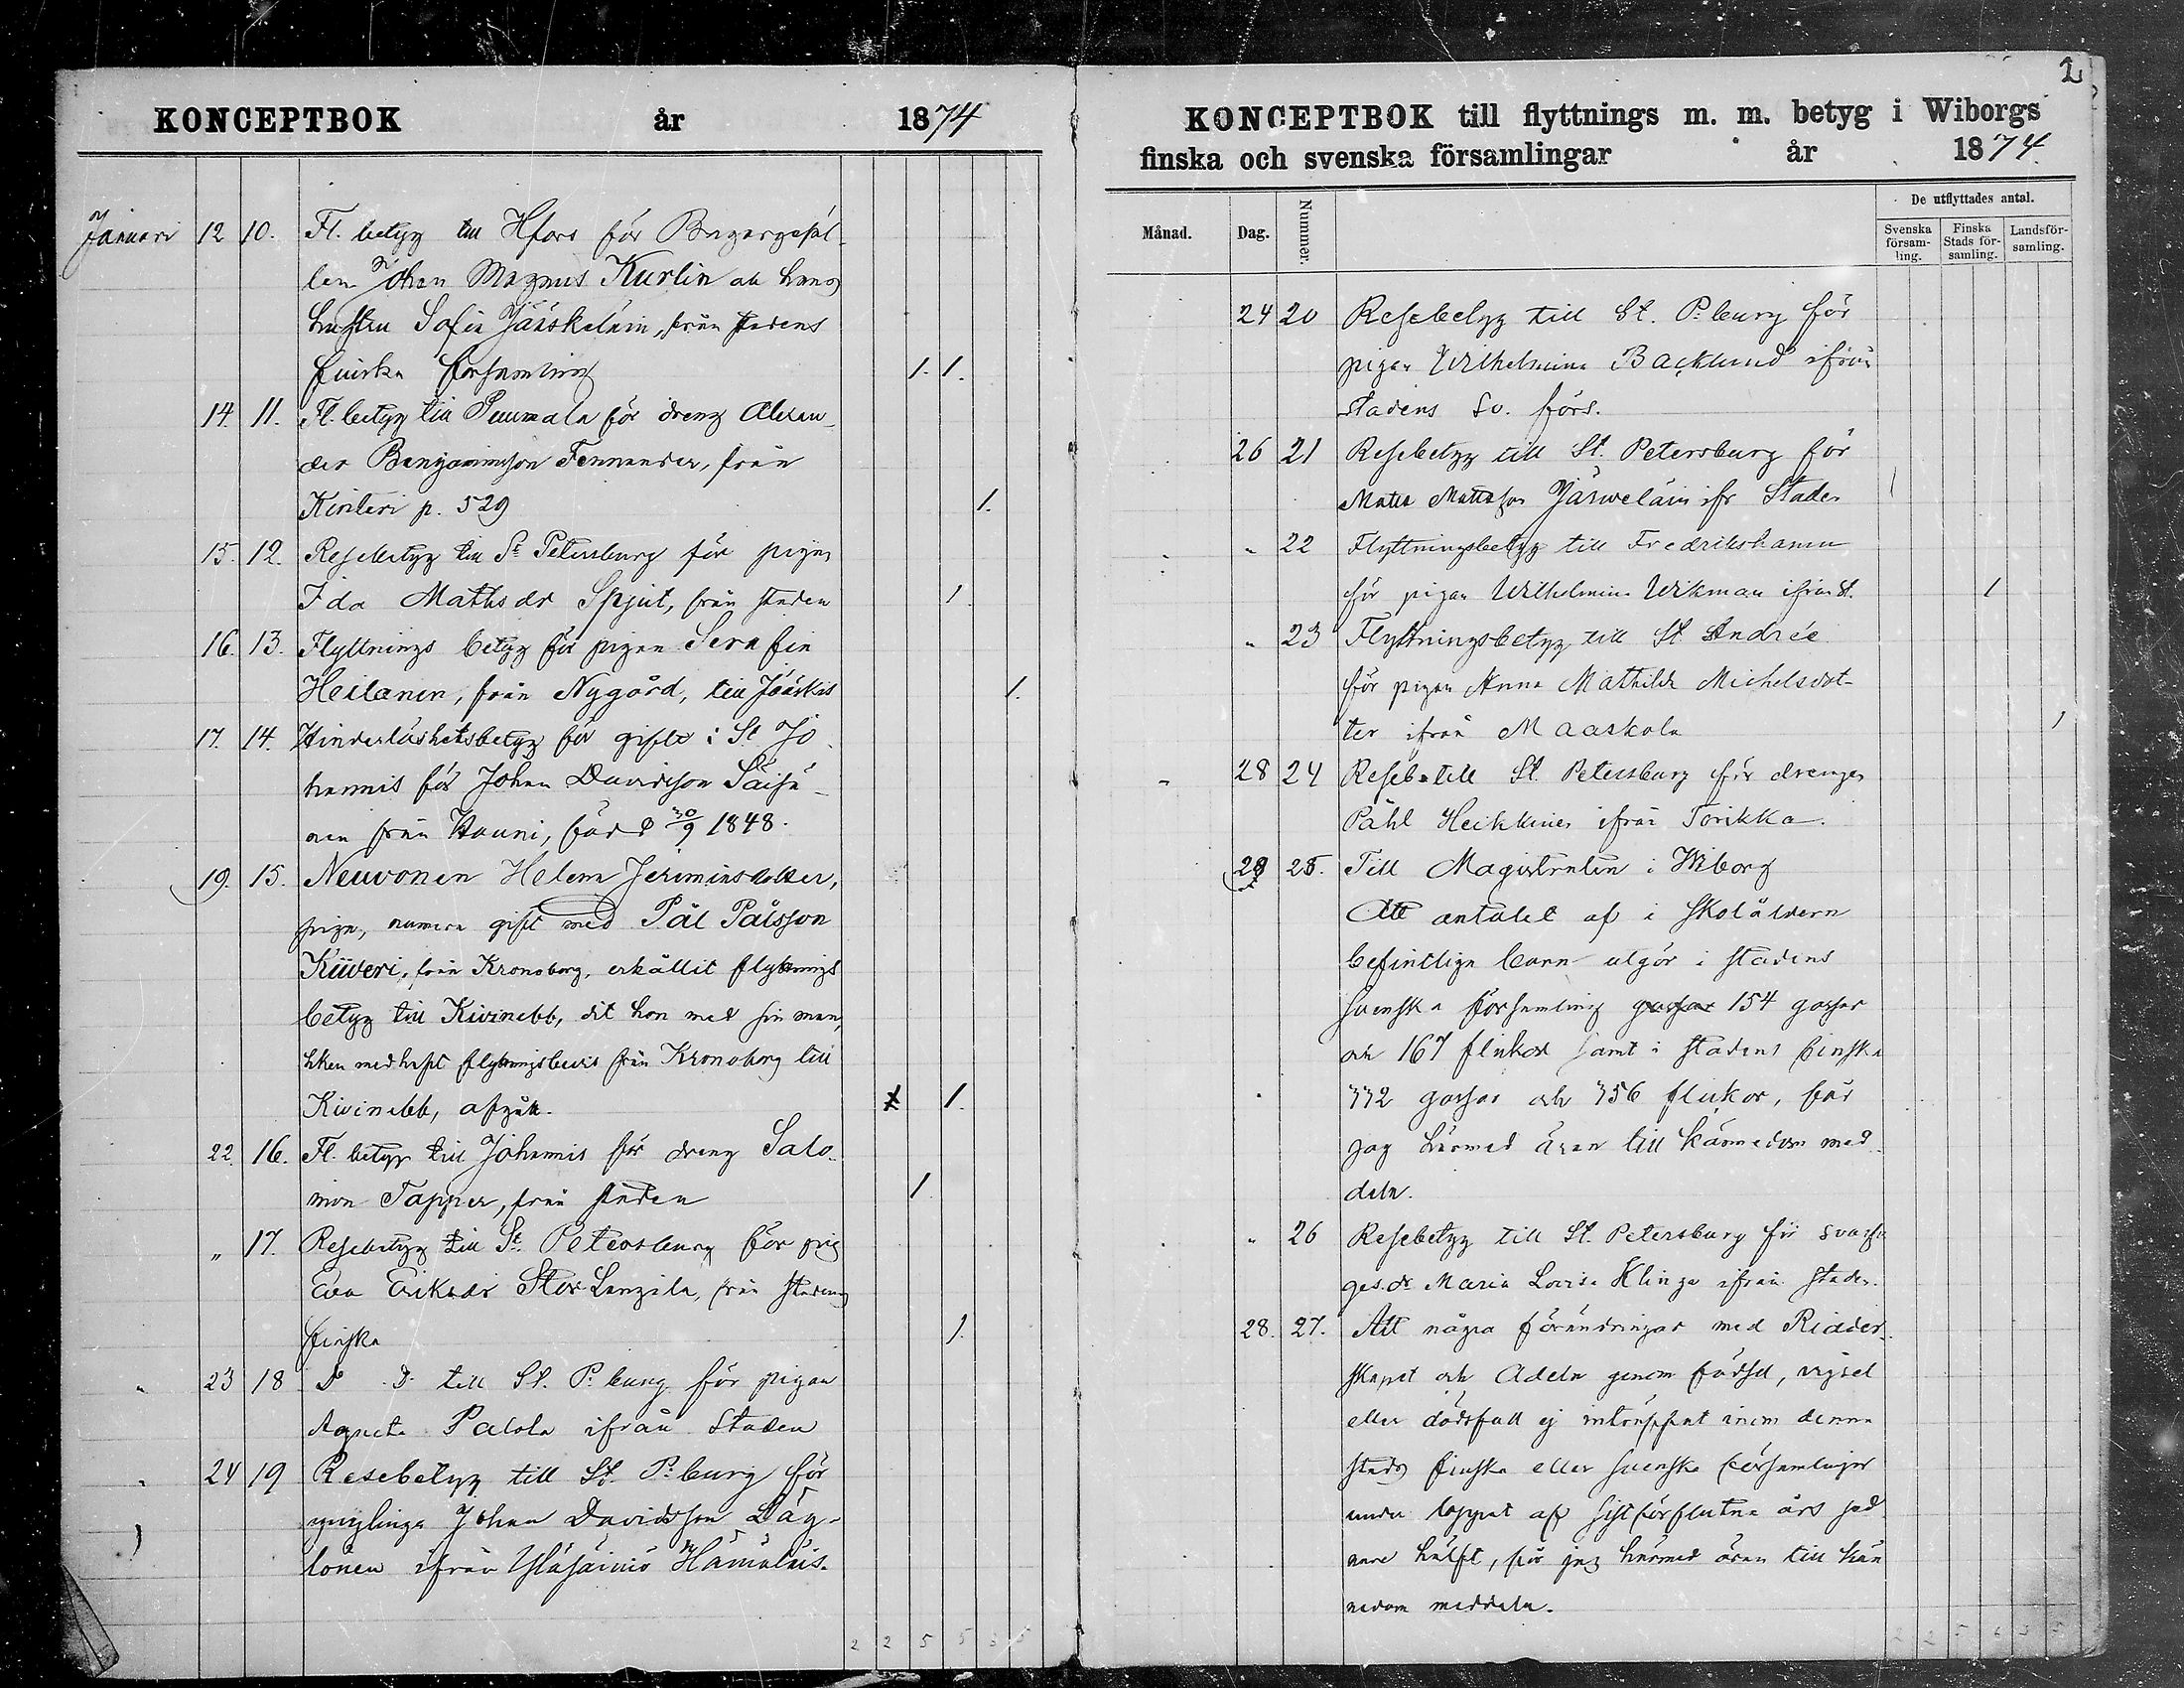 KONCEPTBOK år 1874
Januari 12 10. Fl. betyg till Hfors för Bagargesäl-
len Johan Magnus Kurlin och hans
hustru Sofia Jääskeläin, från stadens
finska församling 1. 1.
14. 11. Fl. betyg till Pumala för dreng Alexan-
der Benjaminsson Fennander, från
p. 529 1.
15. 12. Resebetyg till St Petersburg för pigan
Ida Mathsdr Spjut, från staden 1.
16. 13. Flyttnings betyg för pigan Serafin
Heilanen, från Nygård, till Jääskis 1.
17. 14. Hinderlöshetsbetyg för gifte i St Jo-
hannis för Johan Davidsson Säisä-
nen från Hauni, född 30/9 1848.
19. 15. Neuvonen Helena Jeremiasdotter,
piga, numera gift med Pål Pålsson
Kiiveri, från Kronoborg, erhållit flyttnings
betyg till Kivinebb, dit hon med sin man,
hken medhaft flyttningsbevis från Kronoborg till
Kivinebb, afgått. 1.
22. 16. Fl. betyg till Johannis för dreng Salo-
mon Tapper, från staden 1
" 17. Resebetyg till St. Petersburg för pig
Eva Eriksdr Stor Lanzila, från stadens
finska 1.
" 23 18 D D till St. P:burg för pigan
Agneta Palola ifrån Staden
" 24 19 Resebetyg till St. P:burg för
ynglinge Johan Davidsson
ifrån
2 2 5 5 3 5
2
KONCEPTBOK till flyttnings m. m. betyg i Wiborgs
finska och svenska församlingar år 1874.
Månad. Dag. Nummer. De utflyttades antal.
Svenska församling. Finska Stads församling. Landsförsamling.
24 20 Resebetyg till St. P:burg för
pigan Wilhelmina Backlund ifrån
stadens sv. förs.
26 21 Resebetyg till St. Petersburg för
Matts Mattsson Järweläin ifr Staden 1
" 22 Flyttningsbetyg till Fredrikshamn
för pigan Wilhelmina Wikman ifrån St. 1
" 23 Flyttningsbetyg till St Andrée
för pigan Anna Mathilda Michelsdot-
ter ifrån Maaskola 1
" 28 24 Reseb. till St. Petersburg för drengen
Påhl Heikkinen ifrån Torikka.
29 25. Till Magistraten i Wiborg
Att antalet af i skolåldern
befintliga barn utgör i stadens
svenska församling gossar 154 gossar
och 167 flickor samt i stadens finska
332 gossar och 356 flickor, får
jag härmed äran till kännedom med-
dela.
" 26 Resebetyg till St. Petersburg för
ges.dr Maria Lovisa Klinga ifrån staden.
28. 27. Att några förändringar med Ridder-
skapet och Adeln genom födsel, vigsel
eller dödsfall ej inträffat inom denna
stads finska eller svenska församlingar
under loppet af sistförflutna års sed-
nare hälft, får jag härmed äran till kän
nedom meddela.
2 2 5 6 3 5